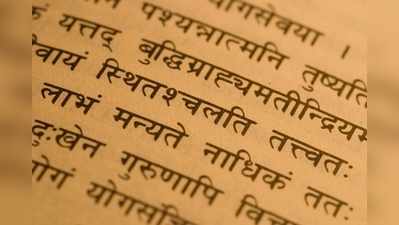 योगसेवया ।
पश्यन्नात्मनि तुष्यति
यत्तद् बुद्धिग्राह्यमतीन्द्रियम
वायं स्थितश्चलति तत्त्वतः
लाभं मन्यते नाधिकं ततः
दुःखेन गुरुणापि विचा
योगं योगसंज्ञि